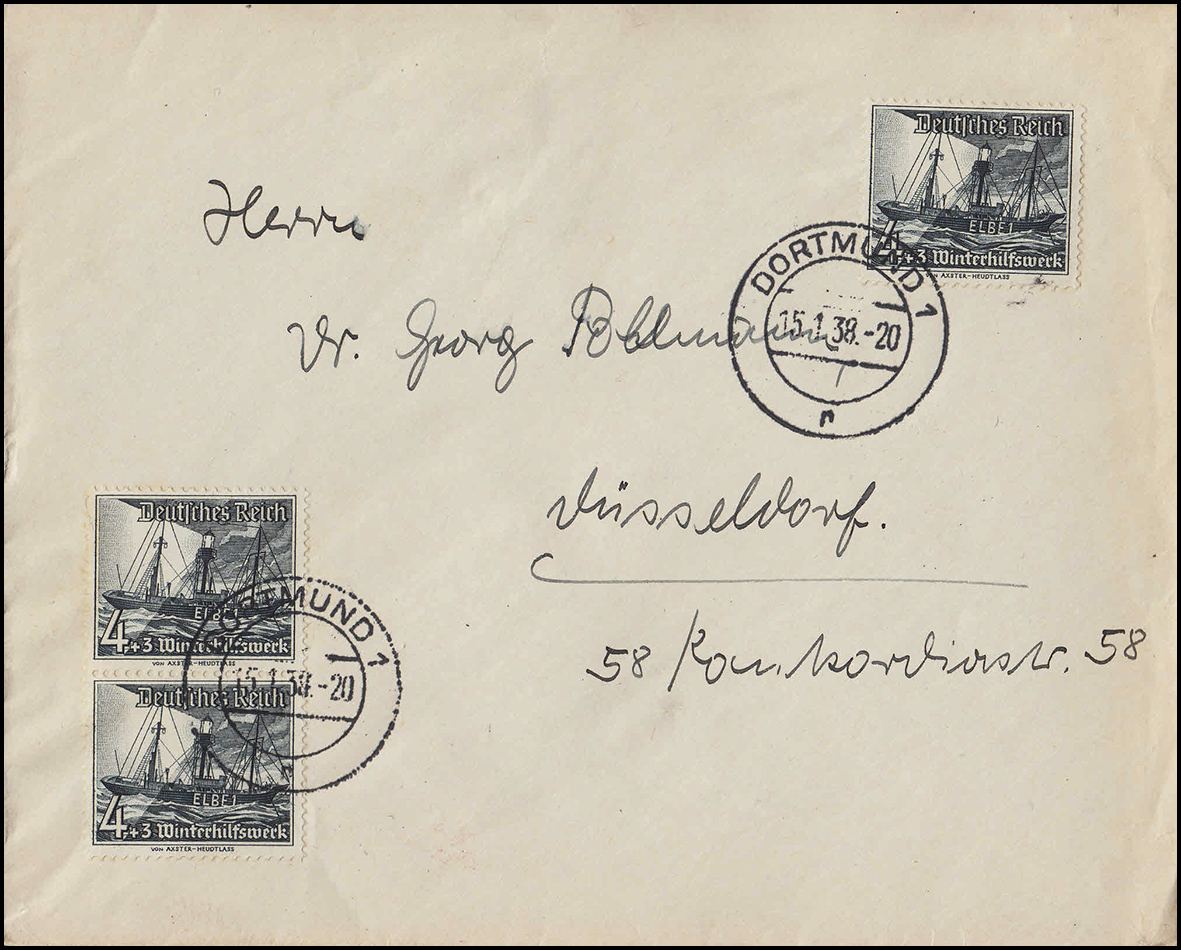 Deutsches Reich
ELBE 1
4+3 Winterhilfswerk
VON AXSTER-HEUDTLASS
DORTMUND 1
15.1.38.-20
n
Herrn
Dr. Georg Pohlmann
Düsseldorf.
58 Konkordiastr. 58
Deutsches Reich
ELBE 1
4+3 Winterhilfswerk
VON AXSTER-HEUDTLASS
DORTMUND 1
15.1.38.-20
n
Deutsches Reich
ELBE 1
4+3 Winterhilfswerk
VON AXSTER-HEUDTLASS